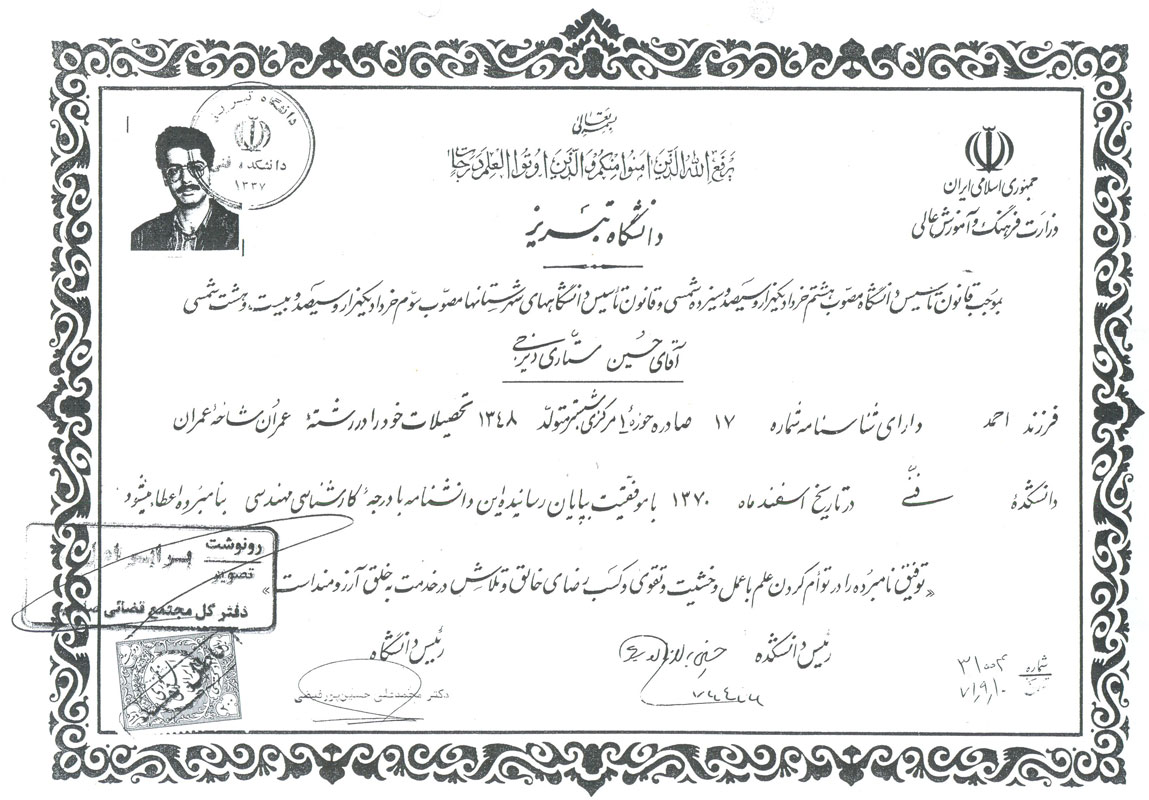 بسمه تعالی
یرفع الله الذین آمنوا منکم و الذین اوتوا العلم درجات
جمهوری اسلامی ایران
وزارت فرهنگ و آموزش عالی
دانشگاه تبریز
دانشگاه تبریز
دانشکده فنی
۱۳۳۷
بموجب قانون تأسیس دانشگاه مصوب هشتم خرداد یکهزار و سیصد و سیزده شمسی و قانون تأسیس دانشگاههای شهرستانها مصوب سوم خرداد یکهزار و سیصد و بیست و هشت شمسی
آقای حسین ستاری دیزجی
فرزند احمد دارای شناسنامه شماره ۱۷ صادره حوزه ۱ مرکزی شبستر متولد ۱۳۴۸ تحصیلات خود را در رشتهٔ عمران شاخه عمران
دانشکدهٔ فنی در تاریخ اسفند ماه ۱۳۷۰ با موفقیت بپایان رسانیده این دانشنامه با درجهٔ کارشناسی مهندسی بنامبرده اعطاء میشود
«توفیق نامبرده را در توأم کردن علم با عمل و خشیت و تقوی و کسب رضای خالق و تلاش در خدمت به خلق آرزومند است»
رونوشت برابر
تصویر
دفتر کل مجتمع قضائی
رئیس دانشکده
رئیس دانشگاه
دکتر محمدعلی حسین‌پور فیضی
شماره ۳۱۰۰۴
تاریخ ۷۱,۹,۱۰